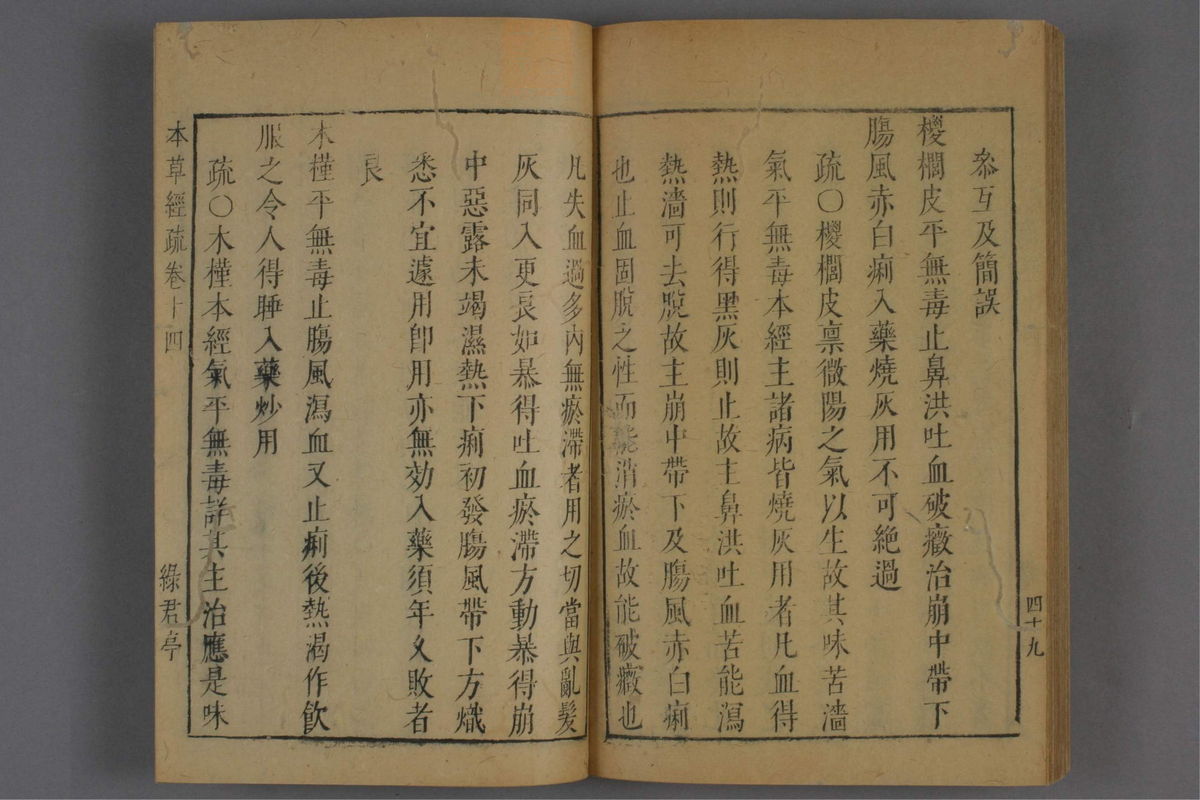 叅互及簡誤
椶櫚皮平無毒止鼻洪吐血破癥治崩中帶下
腸風赤白痢入藥燒灰用不可絶過
疏○椶櫚皮禀微陽之氣以生故其味苦濇
氣平無毒本經主諸病皆燒灰用者凡血得
熱則行得黑灰則止故主鼻洪吐血苦能瀉
熱濇可去脫故主崩中帶下及腸風赤白痢
也止血固脫之性而能消瘀血故能破癥也
四十九
凡失血過多內無瘀滯者用之切當與亂髮
灰同入更良如暴得吐血瘀滯方動暴得崩
中惡露未竭濕熱下痢初發腸風帶下方熾
悉不宜遽用卽用亦無効入藥須年久敗者
良
木槿平無毒止腸風瀉血又止痢後熱渴作飲
服之令人得睡入藥炒用
疏○木槿本經氣平無毒詳其主治應是味
本草經疏卷十四
綠君亭